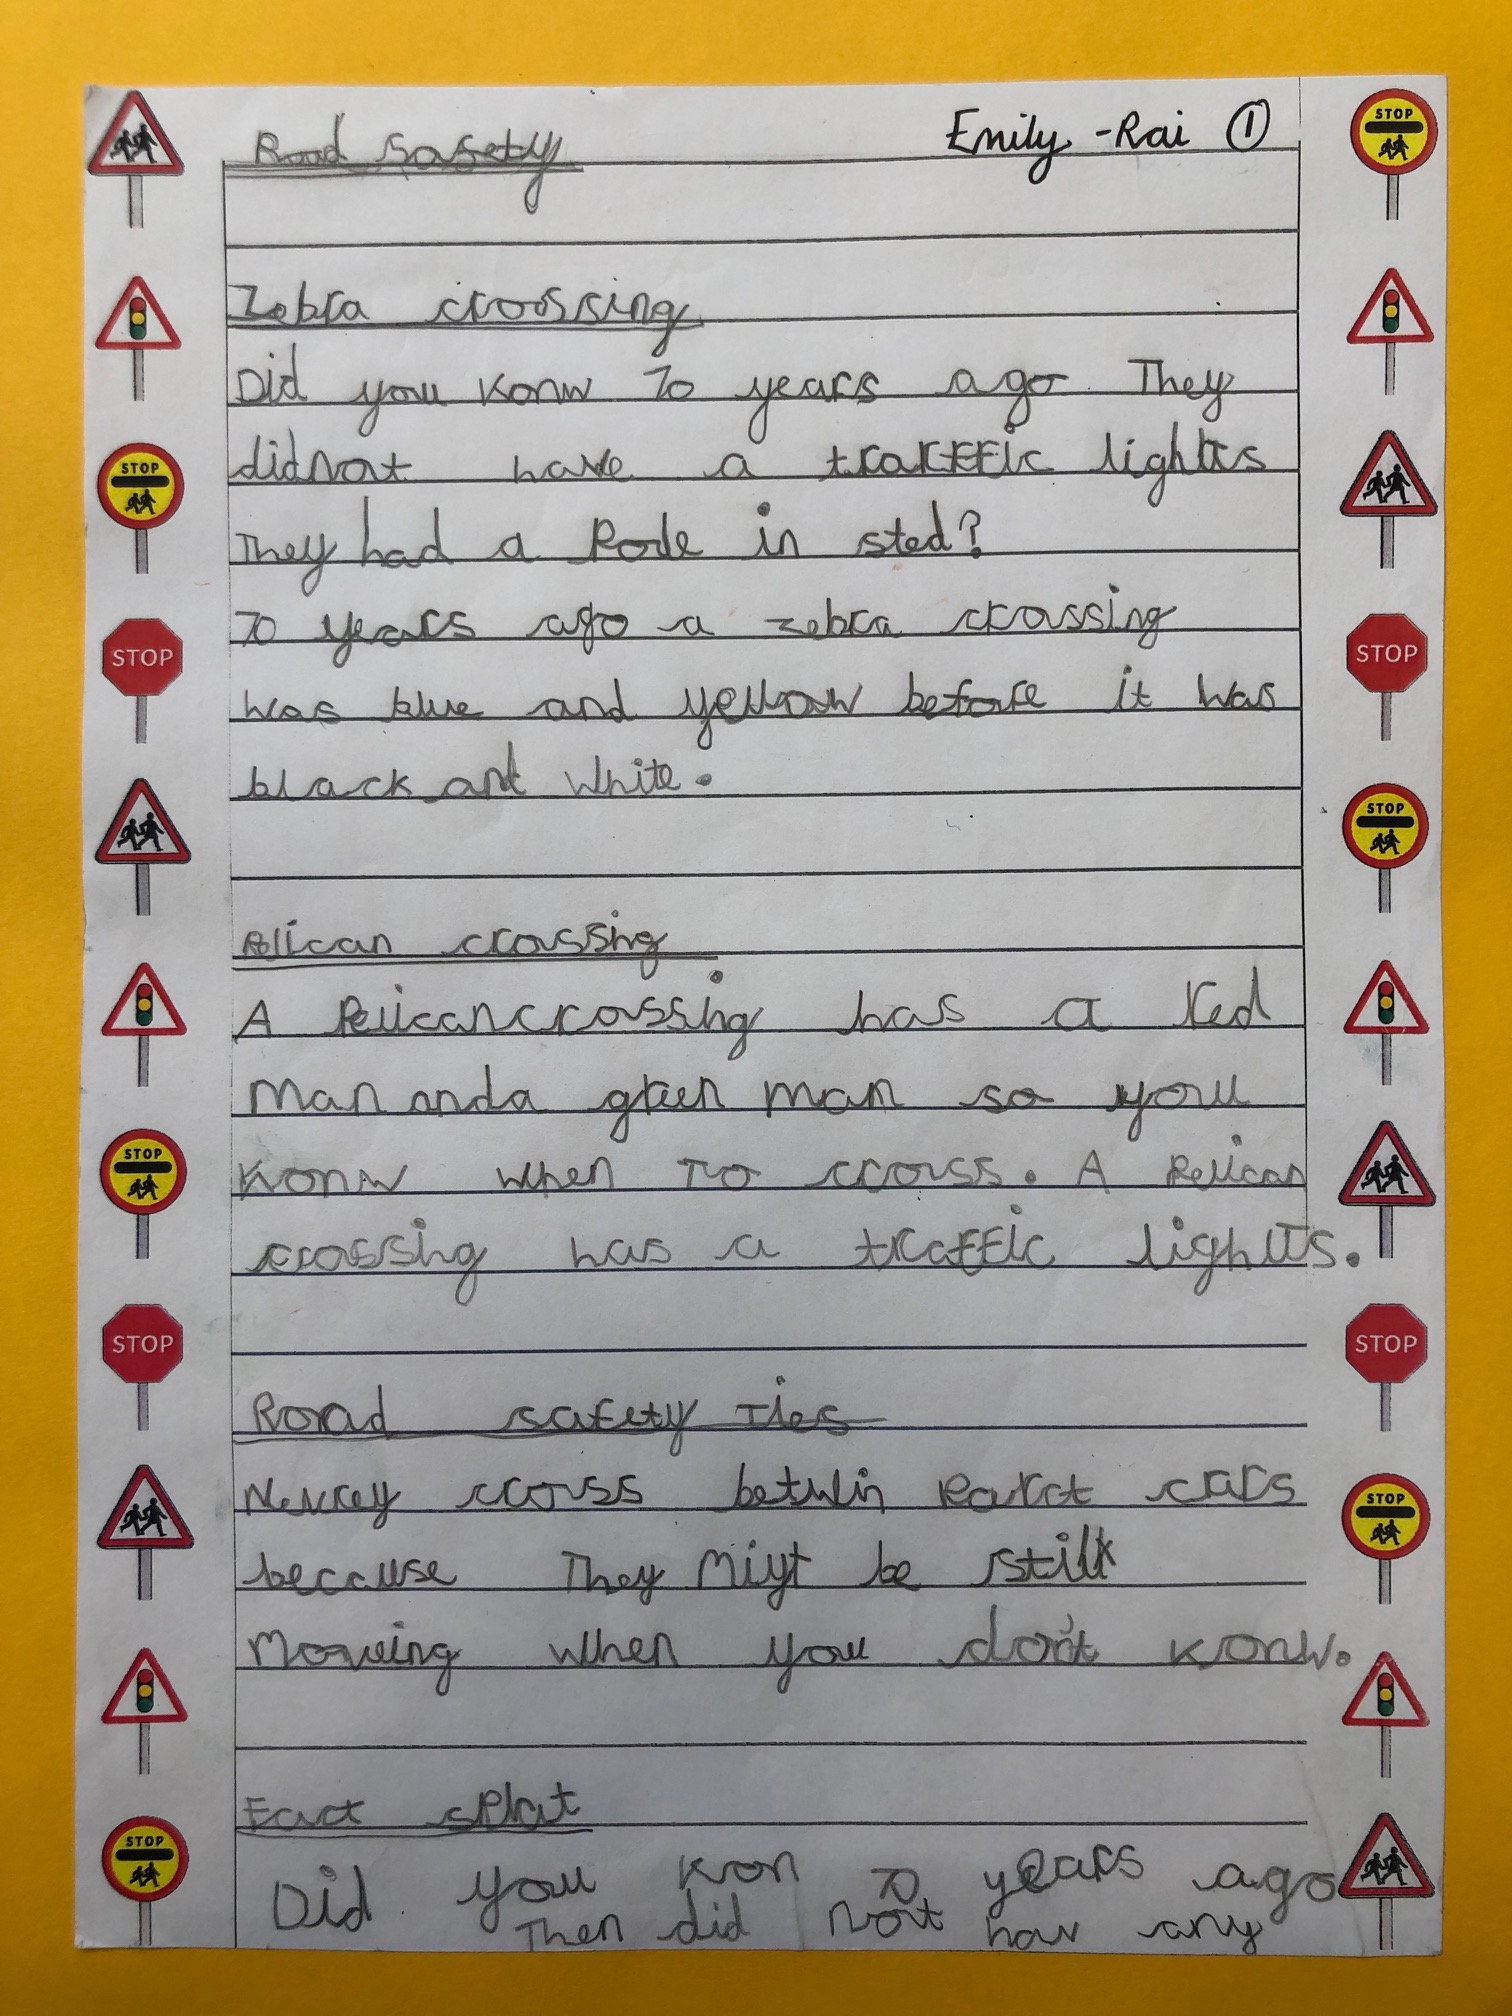 Road Safety
Emily-Rai ①
Zebra croossing
Did you konw 70 years ago They
didnot have a traffic lights
They had a Pole in sted?
70 years ago a zebra crossing
was blue and yellow before it was
black and white.
Pelican crossing
A Pelican crossing has a red
Man and a green man so you
konw when To cross. A Pelican
crossing has a traffic lights.
Road safety Ties
Nevrey cross betwin Parct cars
because They Miyt be still
Moveing when you don't konw.
Fact splat
Did you kon 70 years ago
Then did not hav any
STOP
STOP
STOP
STOP
STOP
STOP
STOP
STOP
STOP
STOP